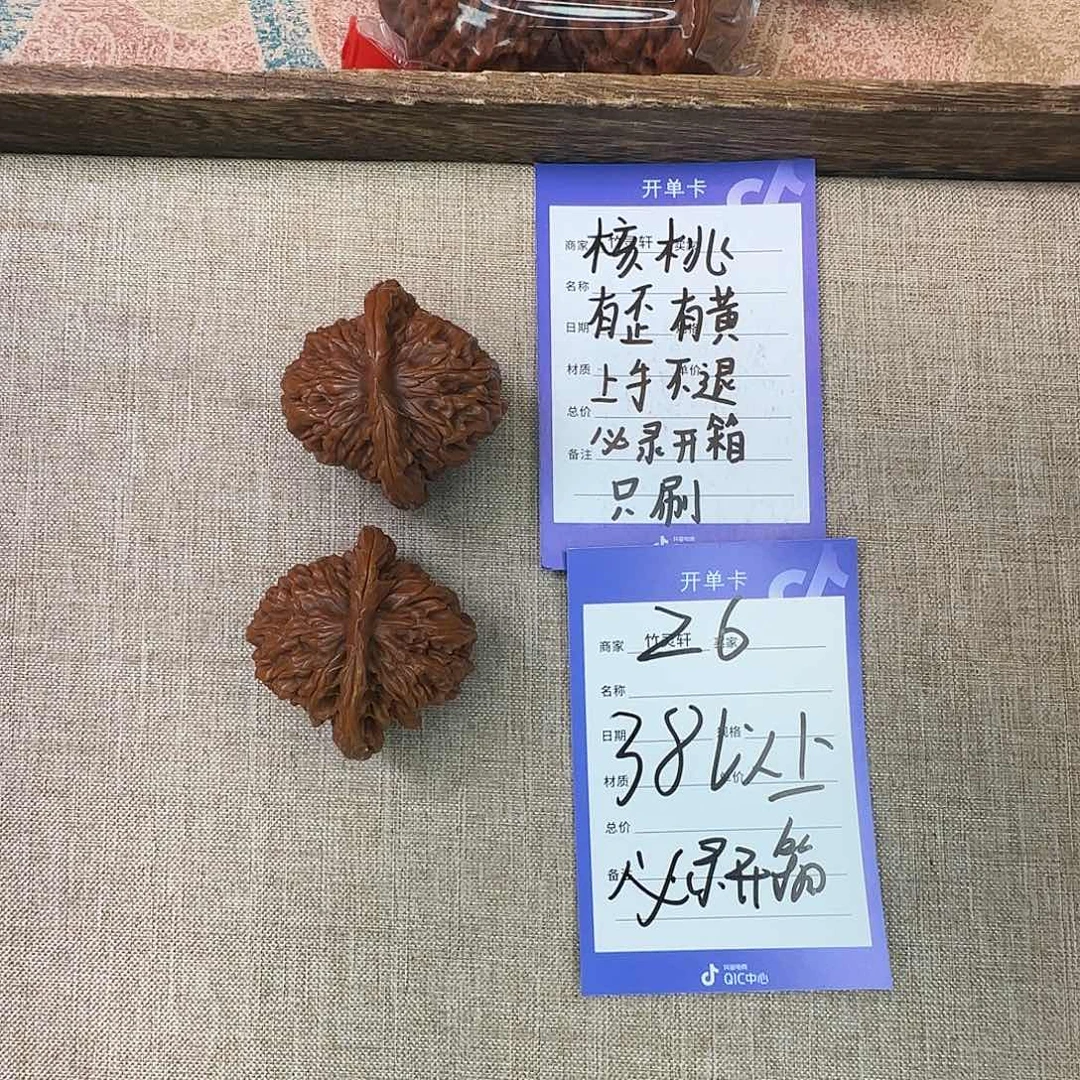 开单卡
商家 竹灵轩 买家
核桃
名称
有歪有黄
日期
材质 单价
上手不退
总价
必录开箱
备注
只刷
开单卡
商家 竹灵轩 买家
26
名称
日期 规格
38以上
材质 单价
总价
备注
必录开箱
抖音电商
QIC中心